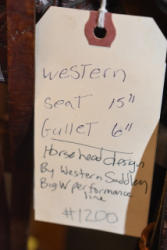 western
seat 15"
Gullet 6"
Horse head design
By Western Saddlery
Big W performance
line
#1200